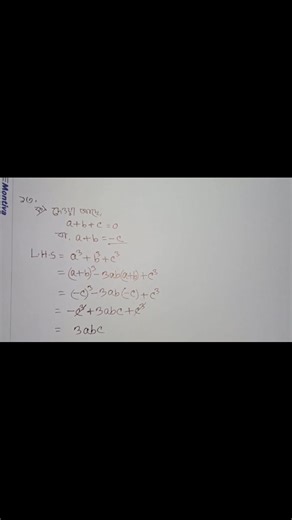 ২৩.
দেওয়া আছে,
a+b+c=0
বা, a+b=-c
L.H.S = a³+b³+c³
= (a+b)³-3ab(a+b)+c³
= (-c)³-3ab(-c)+c³
= -c³+3abc+c³
= 3abc